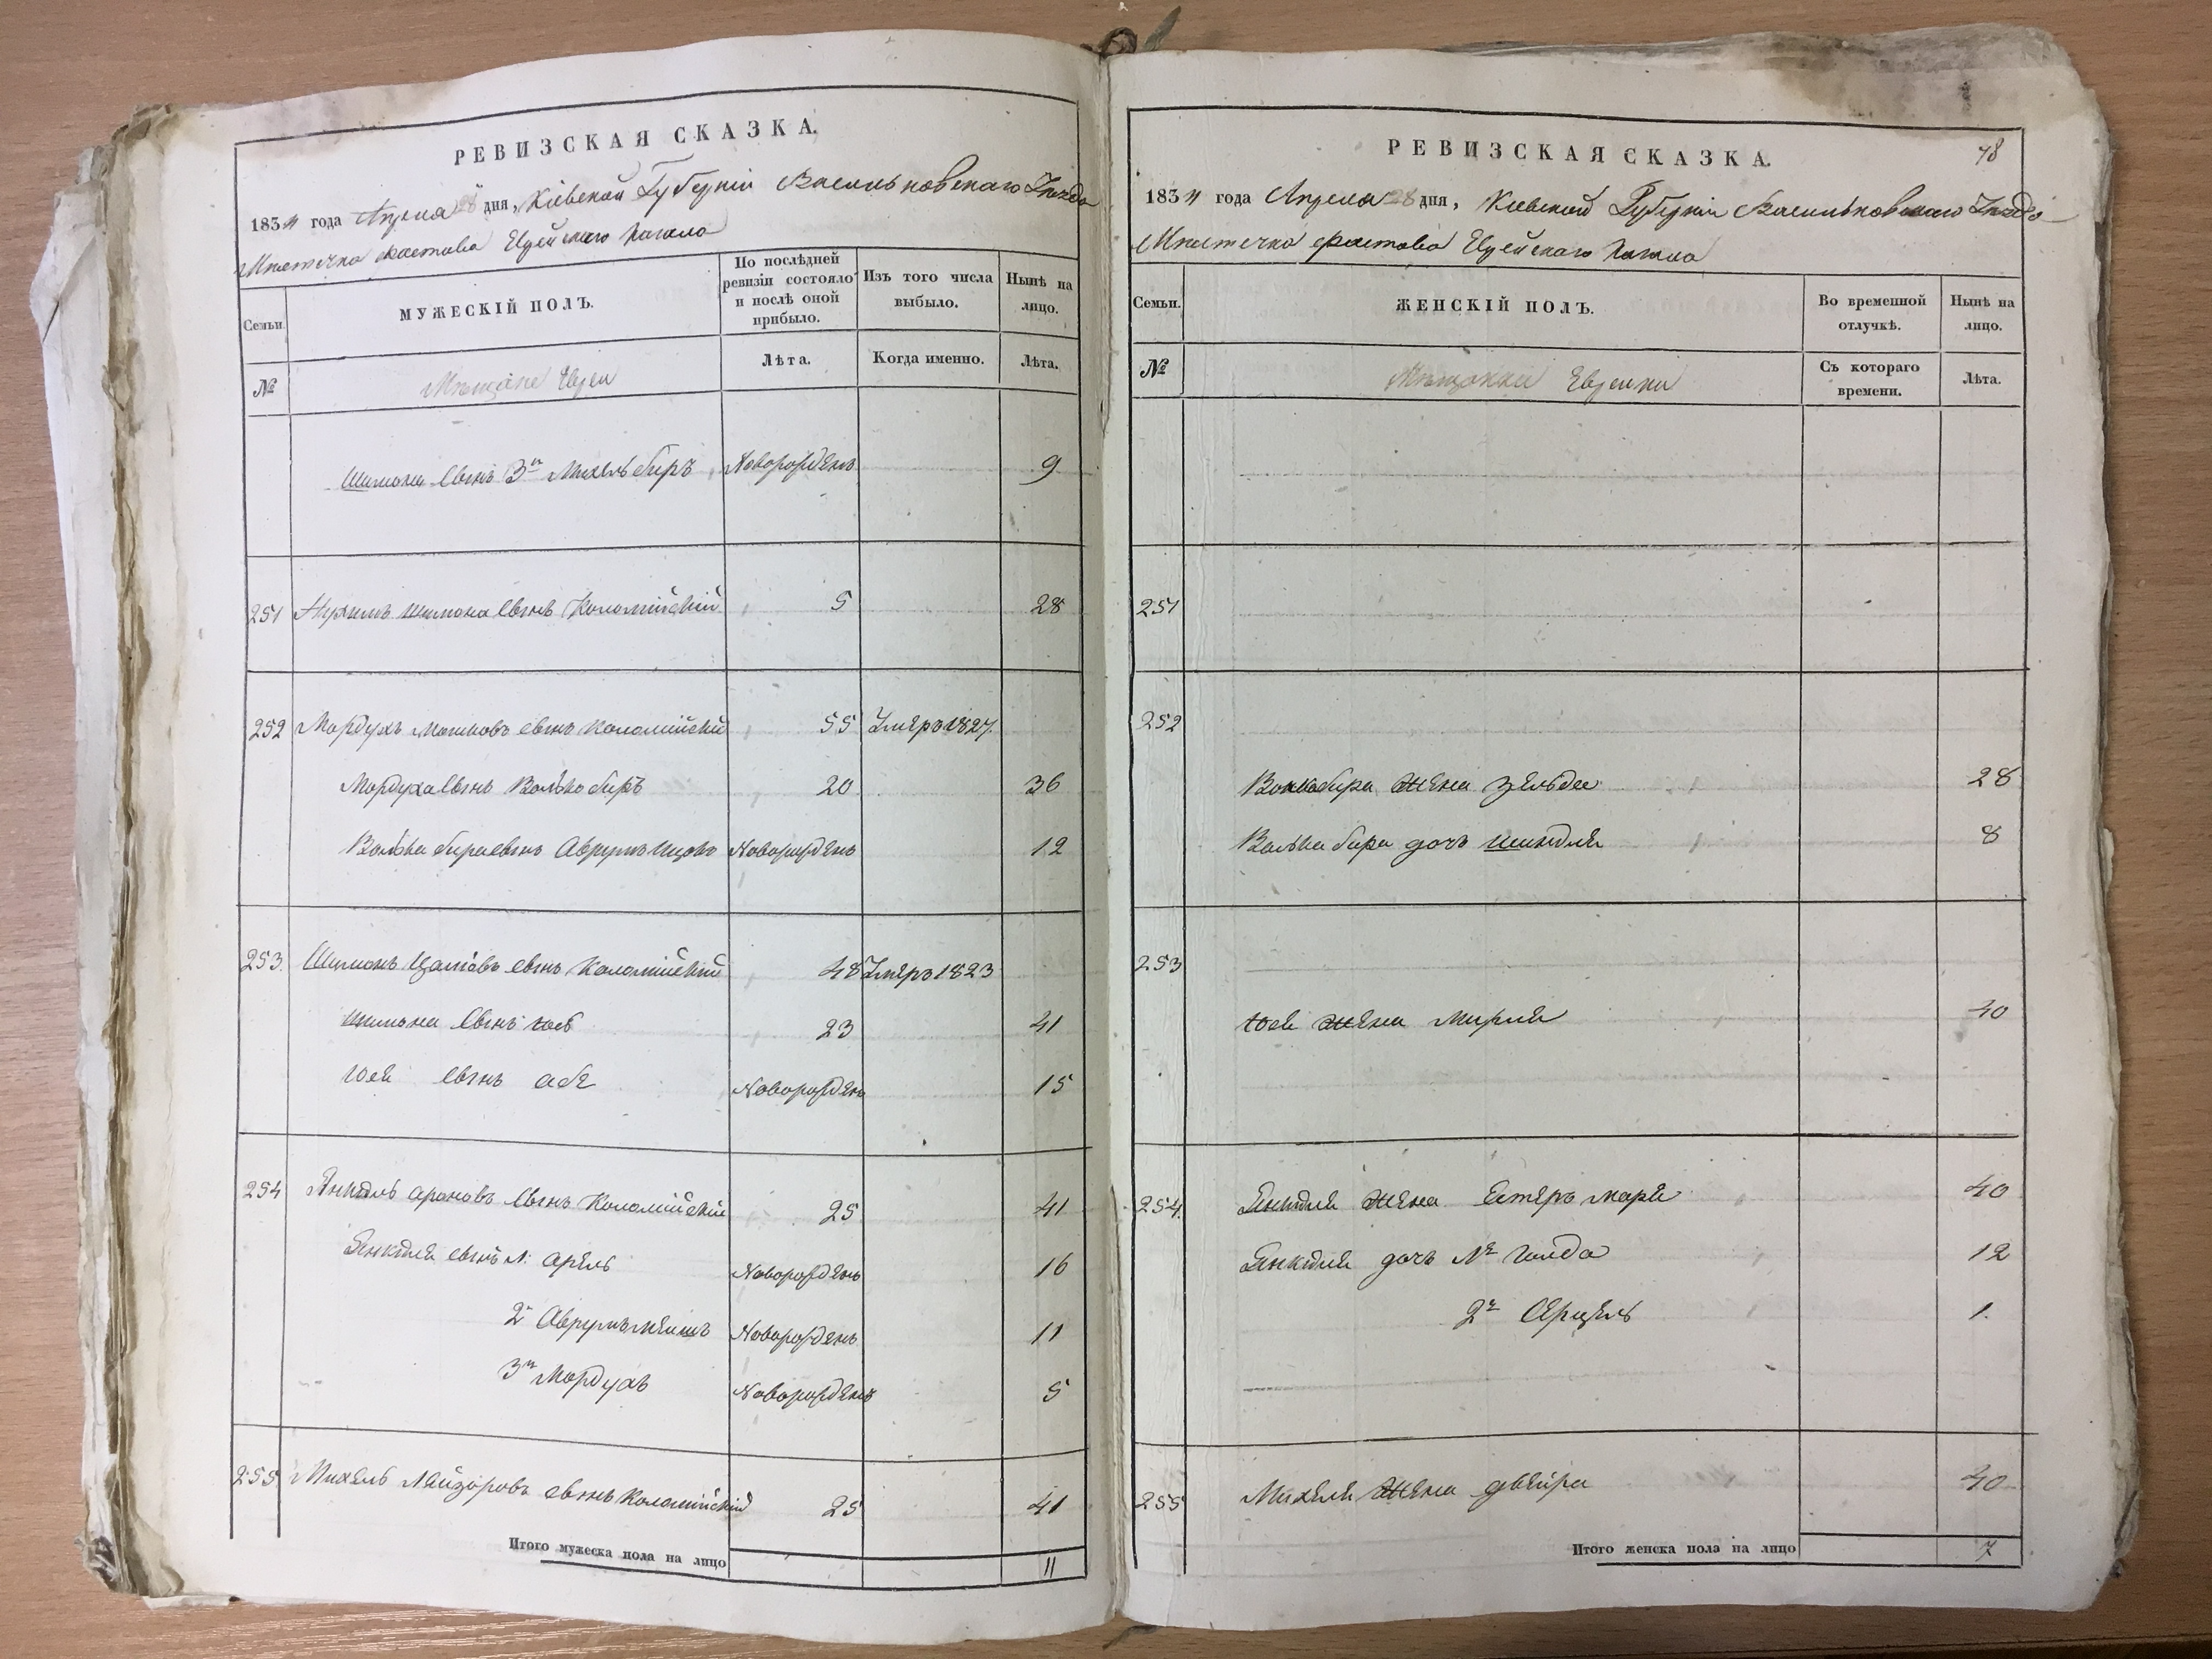 РЕВИЗСКАЯ СКАЗКА.
1834 года Апреля 28 дня, Кіевской Губерніи Васильковскаго Уезда
Местечка Фастова Еврейскаго Кагала
Семьи.
МУЖЕСКІЙ ПОЛЪ.
По послѣдней ревизіи состояло и послѣ оной прибыло.
Изъ того числа выбыло.
Нынѣ на лицо.
№
Мещане Евреи
Лѣта.
Когда именно.
Лѣта.
Шимона сынъ 3й Михель беръ Новорожденъ 9
251 Нухимъ Шимона сынъ Коломійскій 5 28
252 Мордухъ Мошковъ сынъ Коломійскій 55 Умеръ 1827.
Мордуха сынъ Волько беръ 20 36
Волька бера сынъ Аврумъ Ицко Новорожденъ 12
253. Шимонъ сынъ Коломійскій 48 Умеръ 1823
Шимона сынъ Іось 23 41
Іося сынъ Абе Новорожденъ 15
254 Янкель Ароновъ сынъ Коломійскій 25 41
Янкеля сынъ 1. Арель Новорожденъ 16
2й Аврумъ Новорожденъ 11
3й Мордухъ Новорожденъ 5
255 Михель Лейзоровъ сынъ Коломійскій 25 41
Итого мужеска пола на лицо 11
РЕВИЗСКАЯ СКАЗКА.
78
1834 года Апреля 28 дня, Кіевской Губерніи Васильковскаго Уезда
Местечка Фастова Еврейскаго Кагала
Семьи.
ЖЕНСКІЙ ПОЛЪ.
Во временной отлучкѣ.
Нынѣ на лицо.
№
Мещанки Еврейки
Съ котораго времени.
Лѣта.
251
252
Волькобера жена Зельда 28
Волька бера дочь Шиндля 8
253
Іося жена Мирля 40
254. Янкеля жена Естеръ Маря 40
Янкеля дочь 1я Голда 12
2я 1.
255 Михеля жена Двейра 40
Итого женска пола на лицо 7